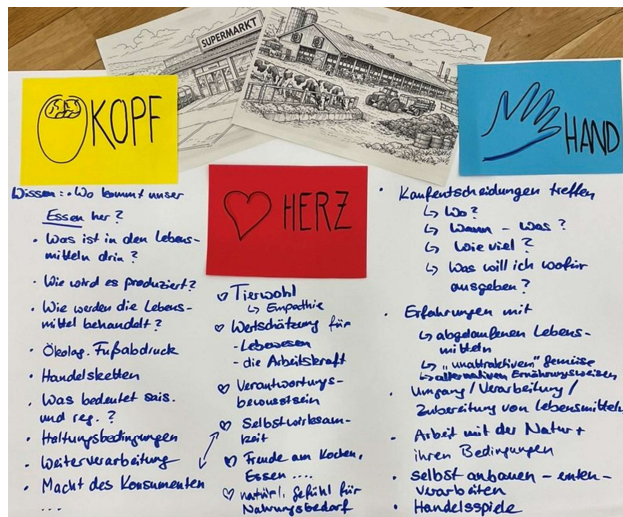 SUPERMARKT
KOPF
Wissen: • Wo kommt unser
Essen her?
• Was ist in den Lebens-
mitteln drin?
• Wie wird es produziert?
• Wie werden die Lebens-
mittel behandelt?
• Ökolog. Fußabdruck
• Handelsketten
• Was bedeutet sais.
und reg.?
• Haltungsbedingungen
• Weiterverarbeitung
• Macht des Konsumenten
...
HERZ
♡ Tierwohl
↳ Empathie
♡ Wertschätzung für
- Lebewesen
- die Arbeitskraft
♡ Verantwortungs-
bewusstsein
♡ Selbstwirksam-
keit
♡ Freude am Kochen,
Essen ....
♡ natürl. Gefühl für
Nahrungsbedarf
HAND
• Kaufentscheidungen treffen
↳ Wo?
↳ Wann - was?
↳ Wie viel?
↳ Was will ich wofür
ausgeben?
• Erfahrungen mit
↳ abgelaufenen Lebens-
mitteln
↳ "unattraktiven" Gemüse
↳ alternativen Ernährungsweisen
• Umgang / Verarbeitung /
Zubereitung von Lebensmitteln
• Arbeit mit der Natur +
ihren Bedingungen
• selbst anbauen - ernten -
verarbeiten
• Handelsspiele